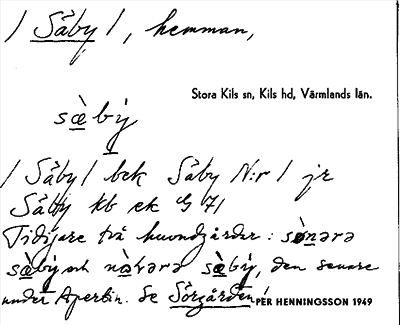 / Såby /, hemman,
Stora Kils sn, Kils hd, Värmlands län.
sὲ̀bý
/ Såby / bek Såby N:r / jr
Såby kb ek G 71
Tidigare två huvudgårdar: sònərə
sὲ̀bý och nòvərə sὲ̀bý, den senare
under Apertin. Se Sörgården!
PER HENNINGSSON 1949